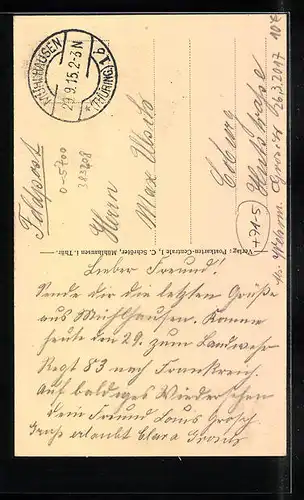 MÜHLHAUSEN
29.9.15.2-3N
*(THÜRING.)1b
Feldpost
0-5700
383208
Herrn
Max
Coburg
(+71-5)
26.3.2017 10€
Verlag: Postkarten-Centrale I. C. Schröter, Mühlhausen i. Thür.
Lieber Freund!
Sende dir die letzten Grüße
aus Mühlhausen. Komme
heute den 29. zum Landwehr
Regt 83 nach Frankreich.
Auf baldiges Wiedersehen
dein Freund Louis Grosch
Gruß erlaubt Clara